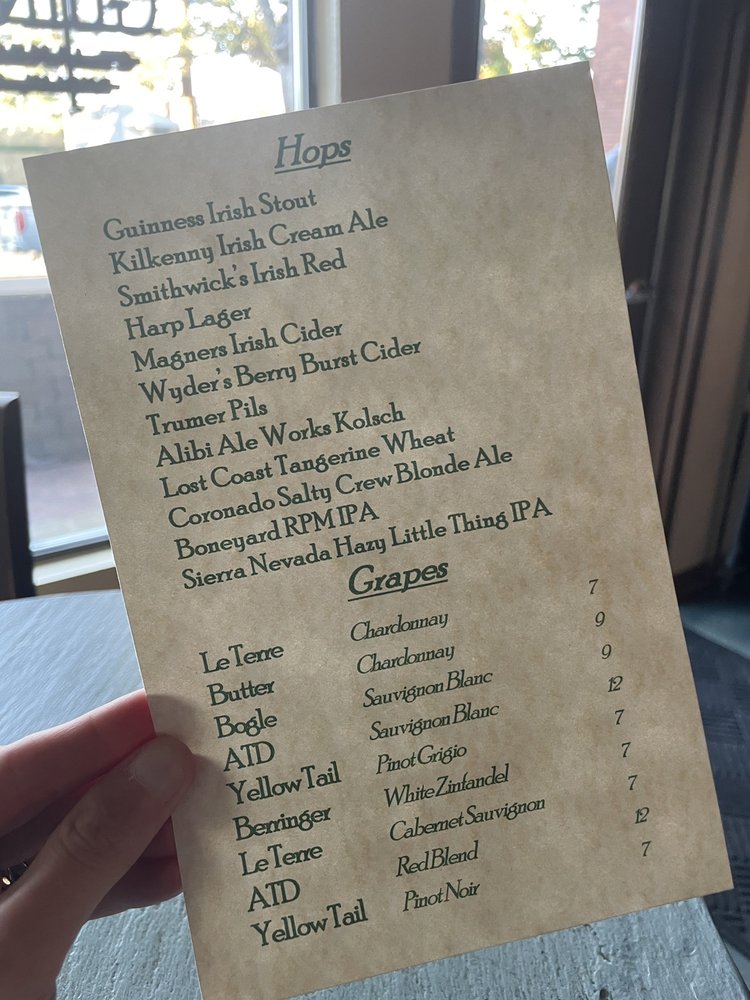 Hops
Guinness Irish Stout
Kilkenny Irish Cream Ale
Smithwick's Irish Red
Harp Lager
Magners Irish Cider
Wyder's Berry Burst Cider
Trumer Pils
Alibi Ale Works Kolsch
Lost Coast Tangerine Wheat
Coronado Salty Crew Blonde Ale
Boneyard RPM IPA
Sierra Nevada Hazy Little Thing IPA
Grapes
Le Terre Chardonnay 7
Butter Chardonnay 9
Bogle Sauvignon Blanc 9
ATD Sauvignon Blanc 12
Yellow Tail Pinot Grigio 7
Berringer White Zinfandel 7
Le Terre Cabernet Sauvignon 7
ATD Red Blend 12
Yellow Tail Pinot Noir 7